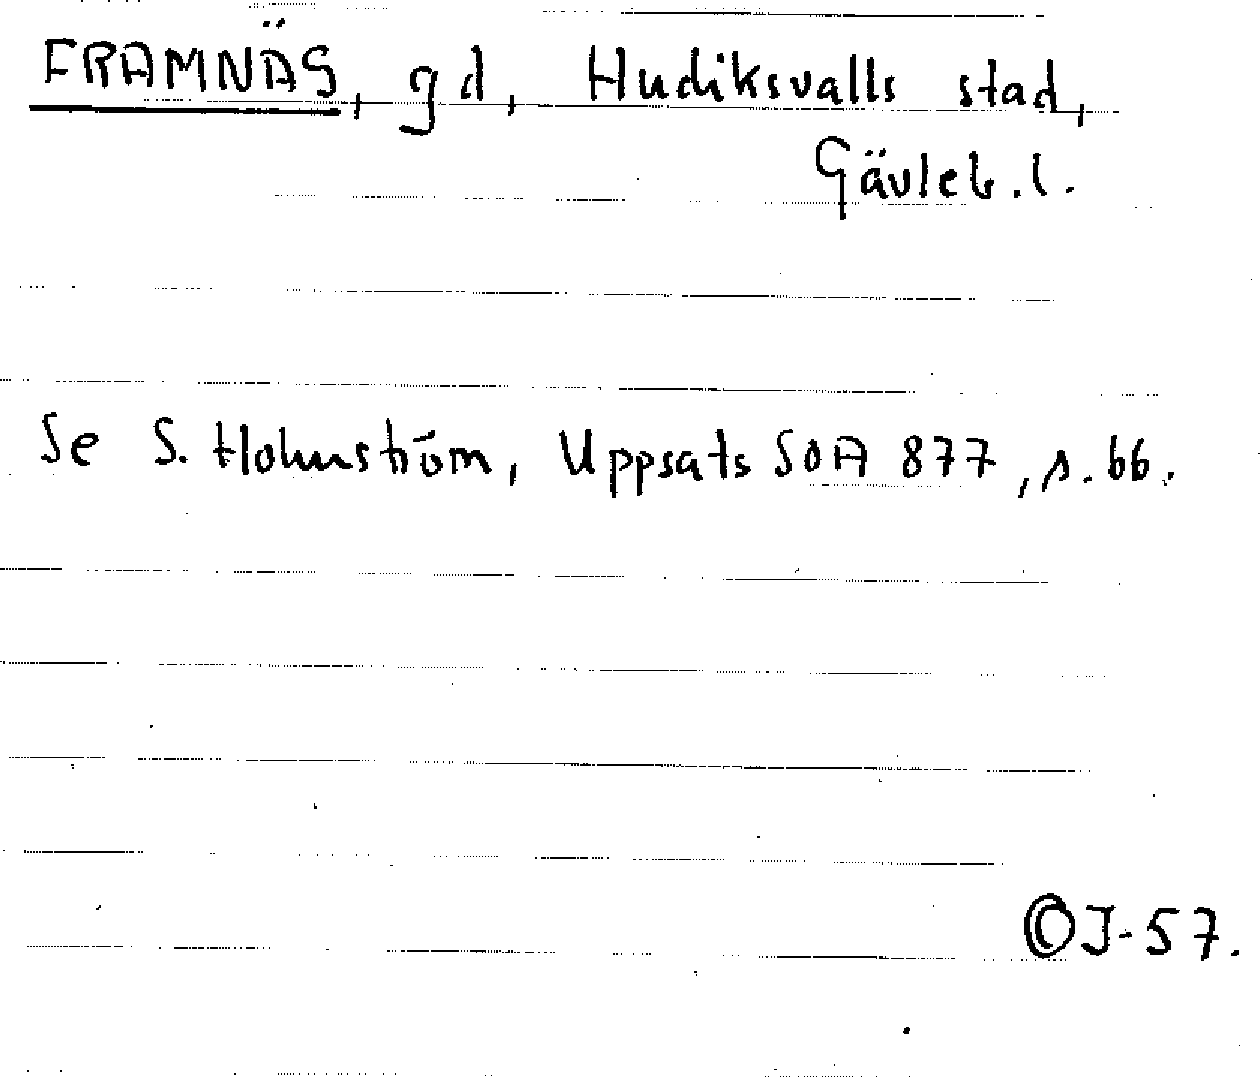 FRAMNÄS, gd, Hudiksvalls stad,
Gävleb.l.
Se S. Holmström, Uppsats SOA 877, s. 66.
©J-57.